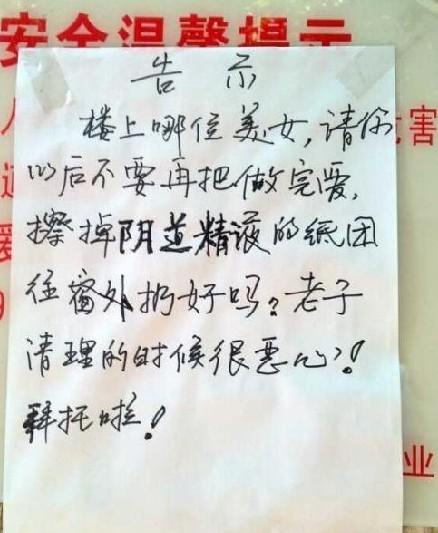 安全温馨提示
告示
楼上哪位美女,请你
以后不要再把做完爱,
擦掉阴道精液的纸团
往窗外扔好吗?老子
清理的时候很恶心!
拜托啦!
害
业